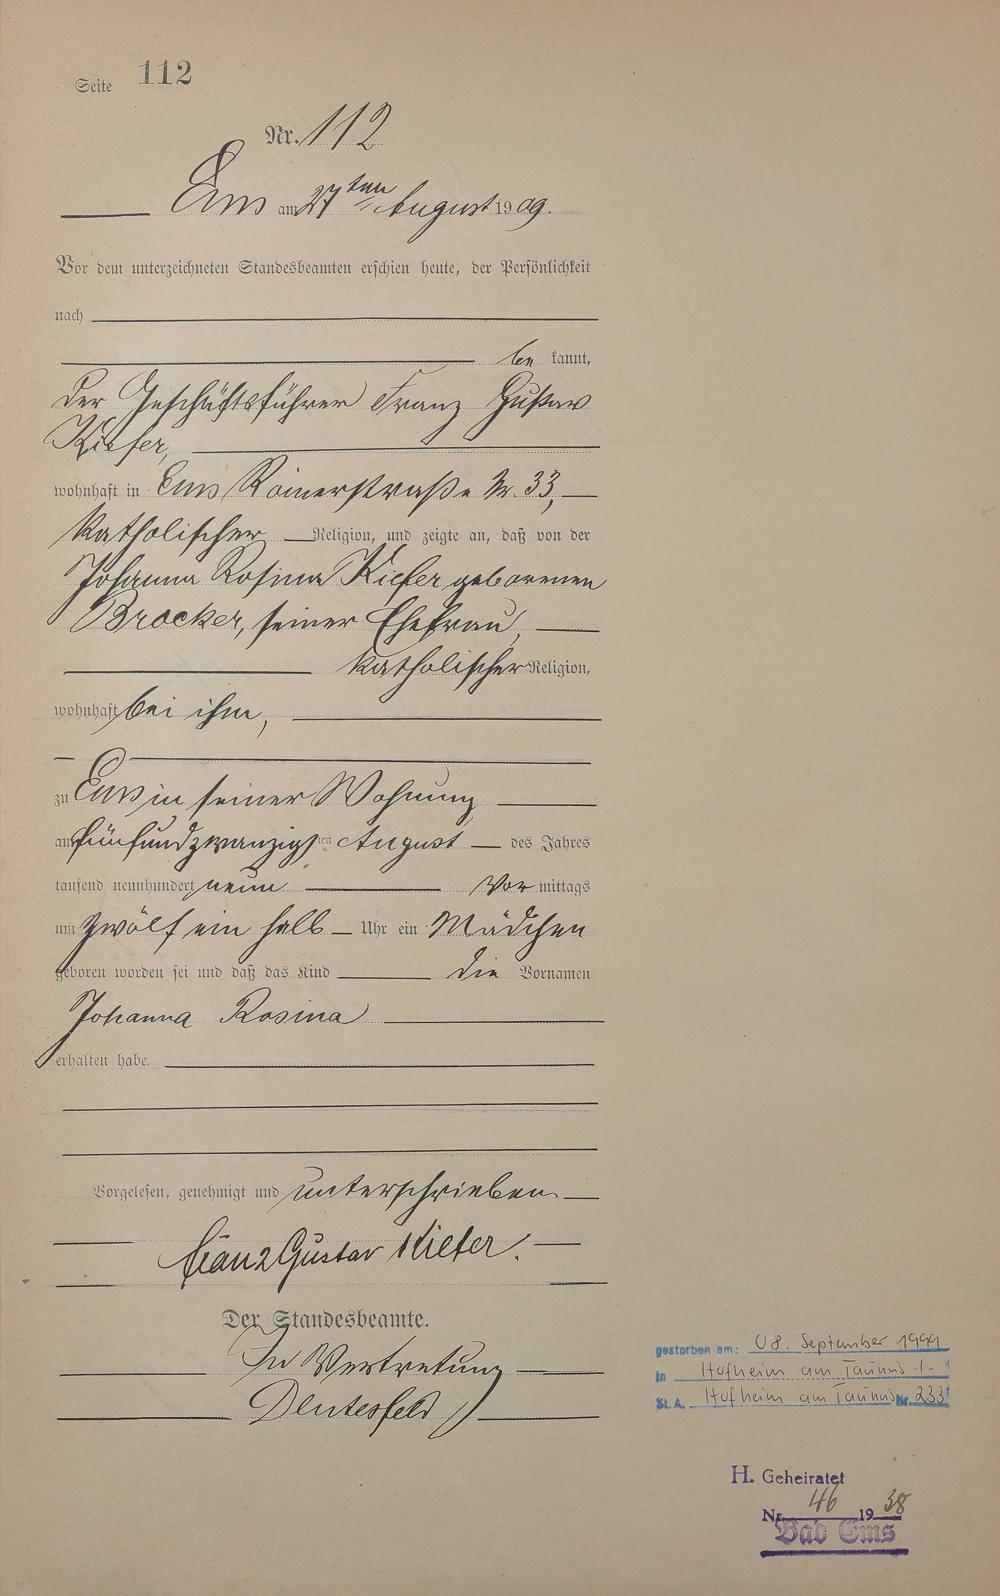 Seite 112
Nr. 112
Ems am 27ten August 1909.
Vor dem unterzeichneten Standesbeamten erschien heute, der Persönlichkeit
nach
be kannt,
der Geschäftsführer Franz Gustav
Kiefer,
wohnhaft in Ems Römerstraße Nr. 33,
katholischer Religion, und zeigte an, daß von der
Johanna Rosina Kiefer geborenen
Brocker, seiner Ehefrau,
katholischer Religion,
wohnhaft bei ihm,
zu Ems in seiner Wohnung
am fünfundzwanzigsten August des Jahres
tausend neunhundert neun Vor mittags
um zwölf ein halb Uhr ein Mädchen
geboren worden sei und daß das Kind die Vornamen
Johanna Rosina
erhalten habe.
Vorgelesen, genehmigt und unterschrieben
Franz Gustav Kiefer.
Der Standesbeamte.
In Vertretung
gestorben am: 08. September 1999
in Hofheim am Taunus -1-
St. A. Hofheim am Taunus Nr. 233
H. Geheiratet
Nr. 46 1938
Bad Ems